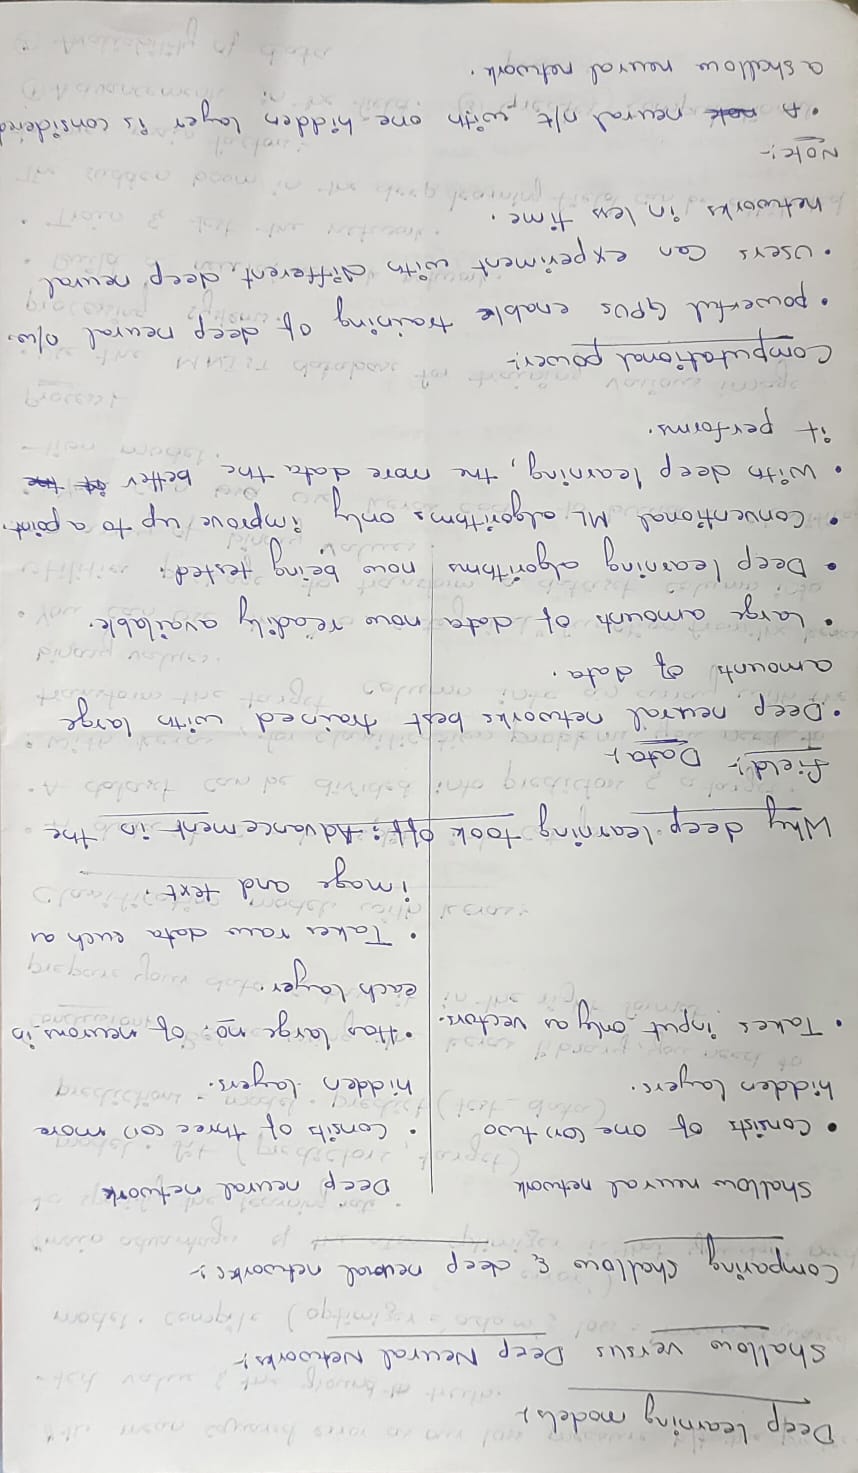 Deep learning models:-
Shallow versus Deep Neural Networks:-
Comparing shallow & deep neural networks:-
Shallow neural network
• Consists of one (or) two
hidden layers.
• Takes input only as vectors.
Deep neural network
• Consits of three (or) more
hidden layers.
• Has large no. of neurons in
each layer.
• Takes raw data such as
image and text.
Why deep learning took off: Advancement in the
field:- Data:-
• Deep neural networks best trained with large
amounts of data.
• Large amounts of data now readily available.
• Deep learning algorithms now being tested.
• Conventional ML algorithms only improve up to a point.
• With deep learning, the more data the better it the
it performs.
Computational power:-
• powerful GPUs enable training of deep neural n/w.
• Users can experiment with different deep neural
networks in less time.
Note:-
• A neural n/t with one hidden layer is considered
a shallow neural network.